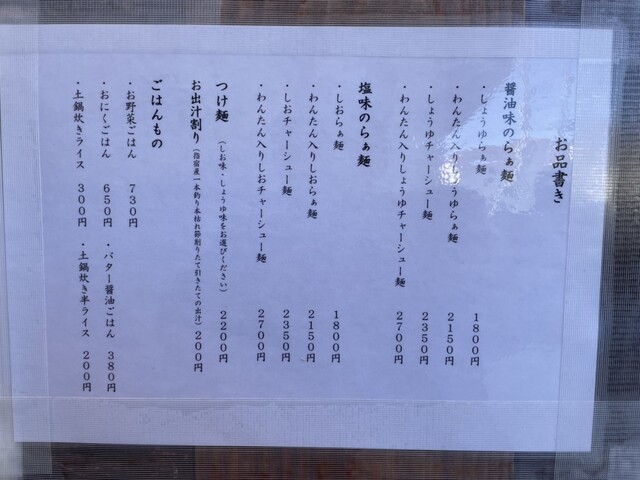 お品書き
醤油味のらぁ麺
・しょうゆらぁ麺 1800円
・わんたん入りしょうゆらぁ麺 2150円
・しょうゆチャーシュー麺 2350円
・わんたん入りしょうゆチャーシュー麺 2700円
塩味のらぁ麺
・しおらぁ麺 1800円
・わんたん入りしおらぁ麺 2150円
・しおチャーシュー麺 2350円
・わんたん入りしおチャーシュー麺 2700円
つけ麺 (しお味・しょうゆ味をお選びください) 2200円
お出汁割り (指宿産一本釣り本枯れ節削りたて引きたての出汁) 200円
ごはんもの
・お野菜ごはん 730円
・おにくごはん 650円 ・バター醤油ごはん 380円
・土鍋炊きライス 300円 ・土鍋炊き半ライス 200円